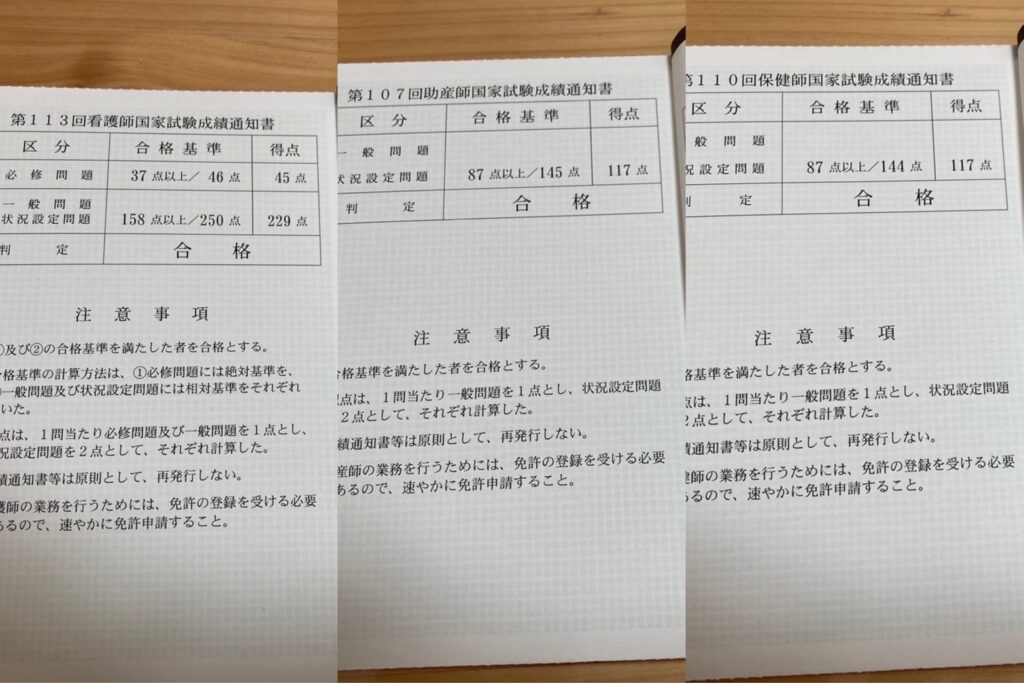 第１１３回看護師国家試験成績通知書
区　分　合格基準　得点
必修問題　37 点以上／ 46 点　45 点
一般問題
状況設定問題　158 点以上／250 点　229 点
判　定　合　格
注　意　事　項
及び②の合格基準を満たした者を合格とする。
格基準の計算方法は、①必修問題には絶対基準を、
一般問題及び状況設定問題には相対基準をそれぞれ
いた。
点は、１問当たり必修問題及び一般問題を１点とし、
況設定問題を２点として、それぞれ計算した。
績通知書等は原則として、再発行しない。
護師の業務を行うためには、免許の登録を受ける必要
あるので、速やかに免許申請すること。
第１０７回助産師国家試験成績通知書
区　分　合格基準　得点
一般問題
状況設定問題　87 点以上／145 点　117 点
判　定　合　格
注　意　事　項
合格基準を満たした者を合格とする。
点は、１問当たり一般問題を１点とし、状況設定問題
２点として、それぞれ計算した。
績通知書等は原則として、再発行しない。
産師の業務を行うためには、免許の登録を受ける必要
あるので、速やかに免許申請すること。
第１１０回保健師国家試験成績通知書
区　分　合格基準　得点
般問題
況設定問題　87 点以上／144 点　117 点
定　合　格
注　意　事　項
格基準を満たした者を合格とする。
点は、１問当たり一般問題を１点とし、状況設定問題
２点として、それぞれ計算した。
績通知書等は原則として、再発行しない。
健師の業務を行うためには、免許の登録を受ける必要
あるので、速やかに免許申請すること。